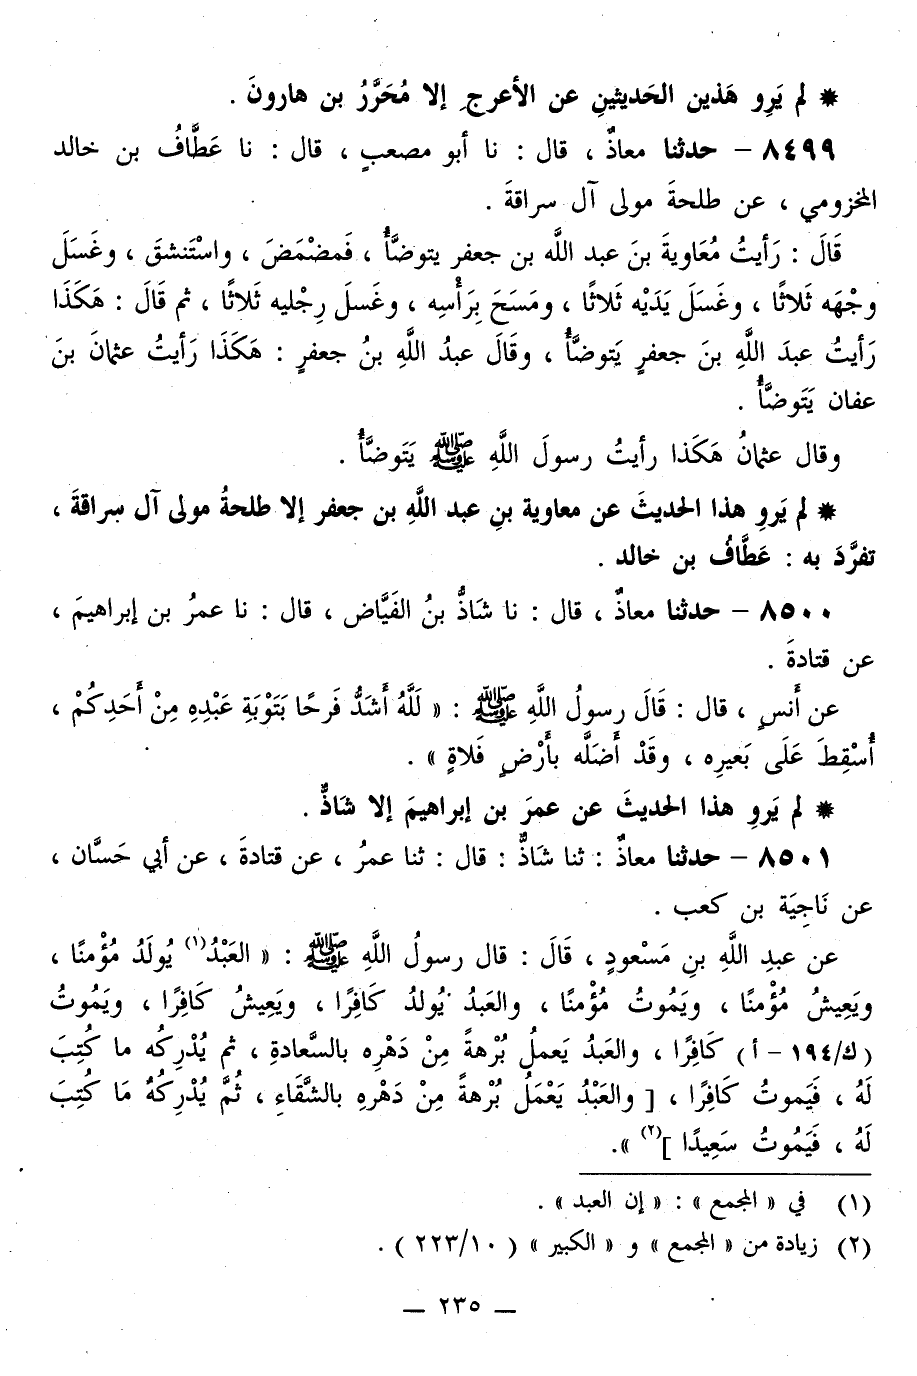 * لم يَروِ هَذين الحَديثينِ عن الأعرجِ إلا مُحَرَّرُ بن هارونَ .
٨٤٩٩ - حدثنا معاذٌ ، قال : نا أبو مصعبٍ ، قال : نا عَطَّافُ بن خالد
المخزومي ، عن طلحةَ مولى آل سراقةَ .
قَالَ : رَأيتُ مُعَاويةَ بنَ عبد اللَّه بن جعفر يتوضَّأُ ، فَمضْمَضَ ، واسْتَنشقَ ، وغَسَلَ
وجْهَه ثَلاثًا ، وغَسَلَ يَدَيْه ثَلاثًا ، ومَسَحَ بِرَأْسِه ، وغَسلَ رِجْليه ثَلاثًا ، ثم قَالَ : هَكَذَا
رَأيتُ عبدَ اللَّهِ بنَ جعفرٍ يَتوضَّأُ ، وقَالَ عبدُ اللَّهِ بنُ جعفرٍ : هَكَذَا رَأيتُ عثمانَ بنَ
عفان يَتَوضَّأُ .
وقال عثمانُ هَكَذا رأيتُ رسولَ اللَّهِ ﷺ يَتَوضَّأُ .
* لم يَروِ هذا الحديثَ عن معاوية بنِ عبد اللَّهِ بن جعفر إلا طلحةُ مولى آل سراقةَ ،
تفرَّدَ به : عَطَّافُ بن خالد .
٨٥٠٠ - حدثنا معاذٌ ، قال : نا شَاذُّ بنُ الفَيَّاض ، قال : نا عمرُ بن إبراهيمَ ،
عن قتادةَ .
عن أَنسٍ ، قال : قَالَ رسولُ اللَّهِ ﷺ : « لَلَّهُ أَشَدُّ فَرحًا بَتَوْبَةِ عَبْدِه مِنْ أَحَدِكُمْ ،
أُسْقِطَ عَلَى بَعيرِه ، وقَدْ أَضَلَّه بأَرْضٍ فَلاةٍ » .
* لم يَروِ هذا الحديثَ عن عمرَ بن إبراهيمَ إلا شاذٌّ .
٨٥٠١ - حدثنا معاذٌ : ثنا شَاذٌّ : قال : ثنا عمرُ ، عن قتادةَ ، عن أبي حَسَّان ،
عن نَاجِيَة بن كعب .
عن عبدِ اللَّهِ بنِ مَسْعودٍ ، قَالَ : قال رسولُ اللَّهِ ﷺ : « العَبْدُ(١) يُولَدُ مُؤْمنًا ،
ويَعِيشُ مُؤْمنًا ، ويَمُوتُ مُؤْمنًا ، والعَبدُ يُولدُ كَافِرًا ، ويَعِيشُ كَافِرًا ، ويَمُوتُ
( ك/١٩٤ - أ ) كَافِرًا ، والعَبدُ يَعملُ بُرْهةً مِنْ دَهْرِه بالسَّعادةِ ، ثم يُدْرِكُه ما كُتِبَ
لَهُ ، فَيَموتُ كَافِرًا ، [ والعَبْدُ يَعْمَلُ بُرْهةً مِنْ دَهْرِهِ بالشَّقَاءِ ، ثُمَّ يُدْرِكُهُ مَا كُتِبَ
لَهُ ، فَيَمُوتُ سَعِيدًا ](٢) ».
(١) في « المجمع » : « إن العبد » .
(٢) زيادة من « المجمع » و « الكبير » ( ٢٢٣/١٠ ) .
— ٢٣٥ —